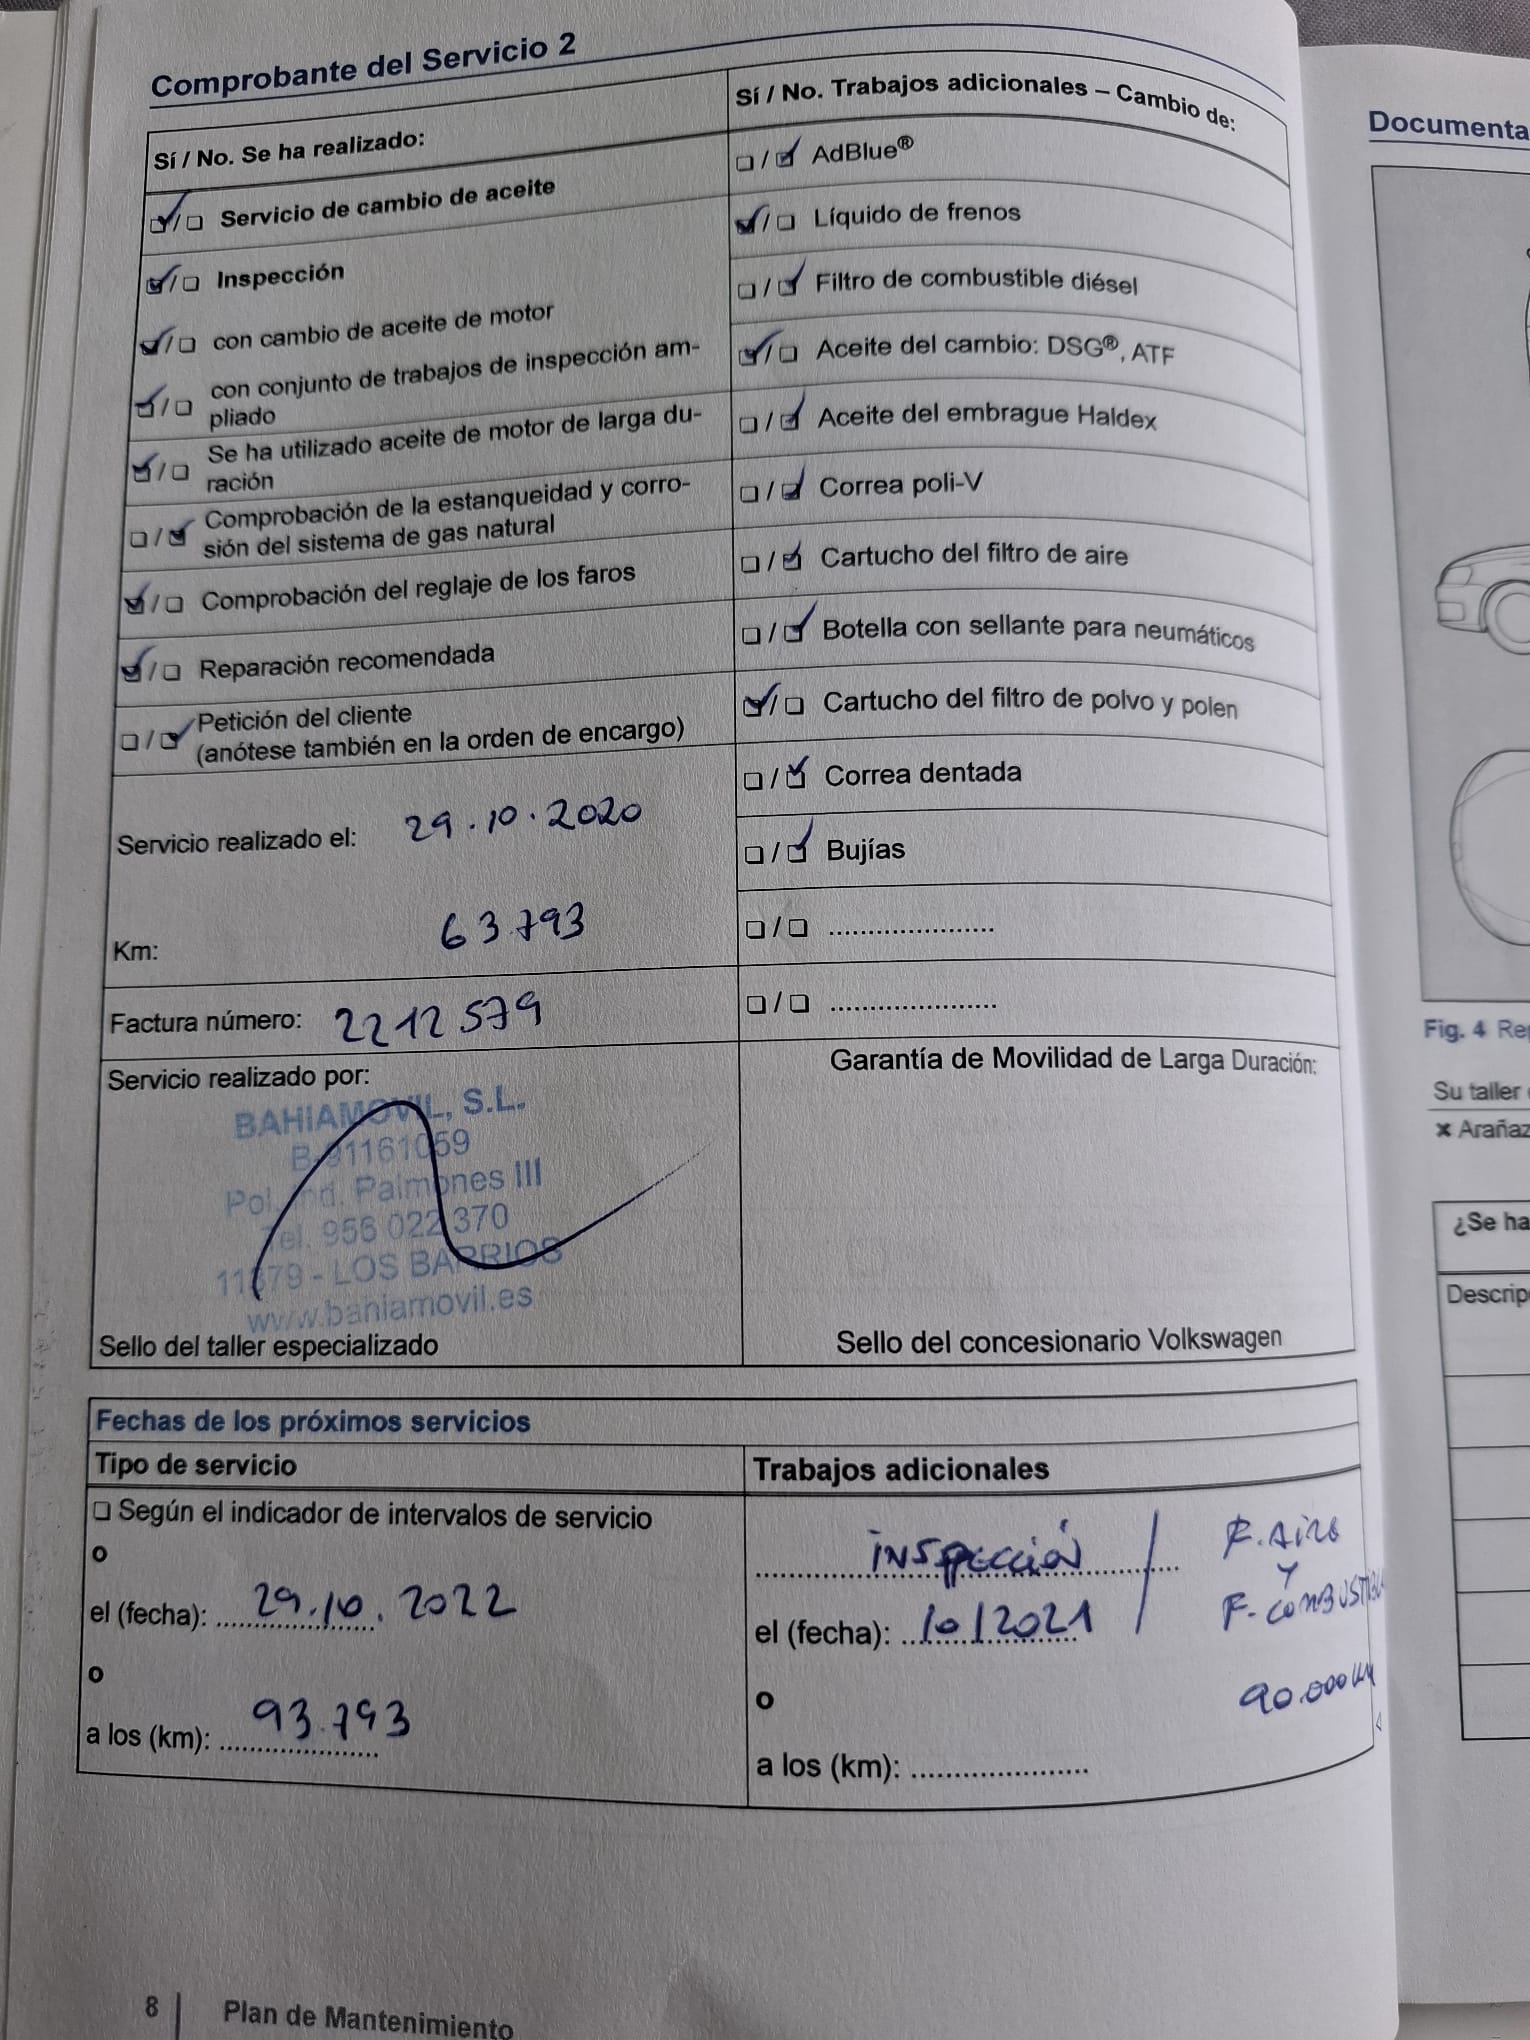 Comprobante del Servicio 2
Sí / No. Se ha realizado:
☑ / ☐ Servicio de cambio de aceite
☑ / ☐ Inspección
☑ / ☐ con cambio de aceite de motor
☑ / ☐ con conjunto de trabajos de inspección am-
pliado
☑ / ☐ Se ha utilizado aceite de motor de larga du-
ración
☐ / ☑ Comprobación de la estanqueidad y corro-
sión del sistema de gas natural
☑ / ☐ Comprobación del reglaje de los faros
☑ / ☐ Reparación recomendada
☐ / ☑ Petición del cliente
(anótese también en la orden de encargo)
Servicio realizado el: 29.10.2020
Km: 63.793
Factura número: 2212579
Servicio realizado por:
BAHIAMOVIL, S.L.
B-91161059
Pol. Ind. Palmones III
Tel. 956 022 370
11379 - LOS BARRIOS
www.bahiamovil.es
Sello del taller especializado
Sí / No. Trabajos adicionales – Cambio de:
☐ / ☑ AdBlue®
☑ / ☐ Líquido de frenos
☐ / ☑ Filtro de combustible diésel
☑ / ☐ Aceite del cambio: DSG®, ATF
☐ / ☑ Aceite del embrague Haldex
☐ / ☑ Correa poli-V
☐ / ☑ Cartucho del filtro de aire
☐ / ☑ Botella con sellante para neumáticos
☑ / ☐ Cartucho del filtro de polvo y polen
☐ / ☑ Correa dentada
☐ / ☑ Bujías
☐ / ☐ .....................
☐ / ☐ .....................
Garantía de Movilidad de Larga Duración:
Sello del concesionario Volkswagen
Fechas de los próximos servicios
Tipo de servicio
☐ Según el indicador de intervalos de servicio
o
el (fecha): 29.10.2022
o
a los (km): 93.793
Trabajos adicionales
inspección
el (fecha): 10/2021
o
a los (km): .....................
F. Aire
Y
F. COMBUSTIBLE
90.000 KM
8 | Plan de Mantenimiento
Documenta
Fig. 4 Re
Su taller
✖ Arañaz
¿Se ha
Descrip